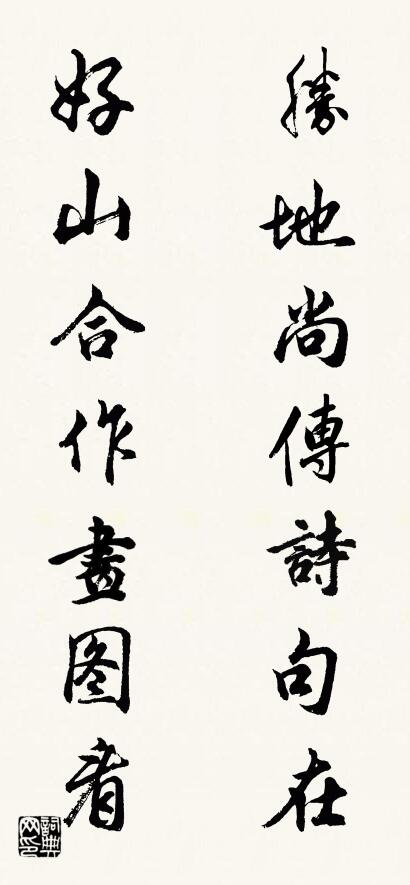 勝地尚傳詩句在
好山合作畫图看
詞典网印